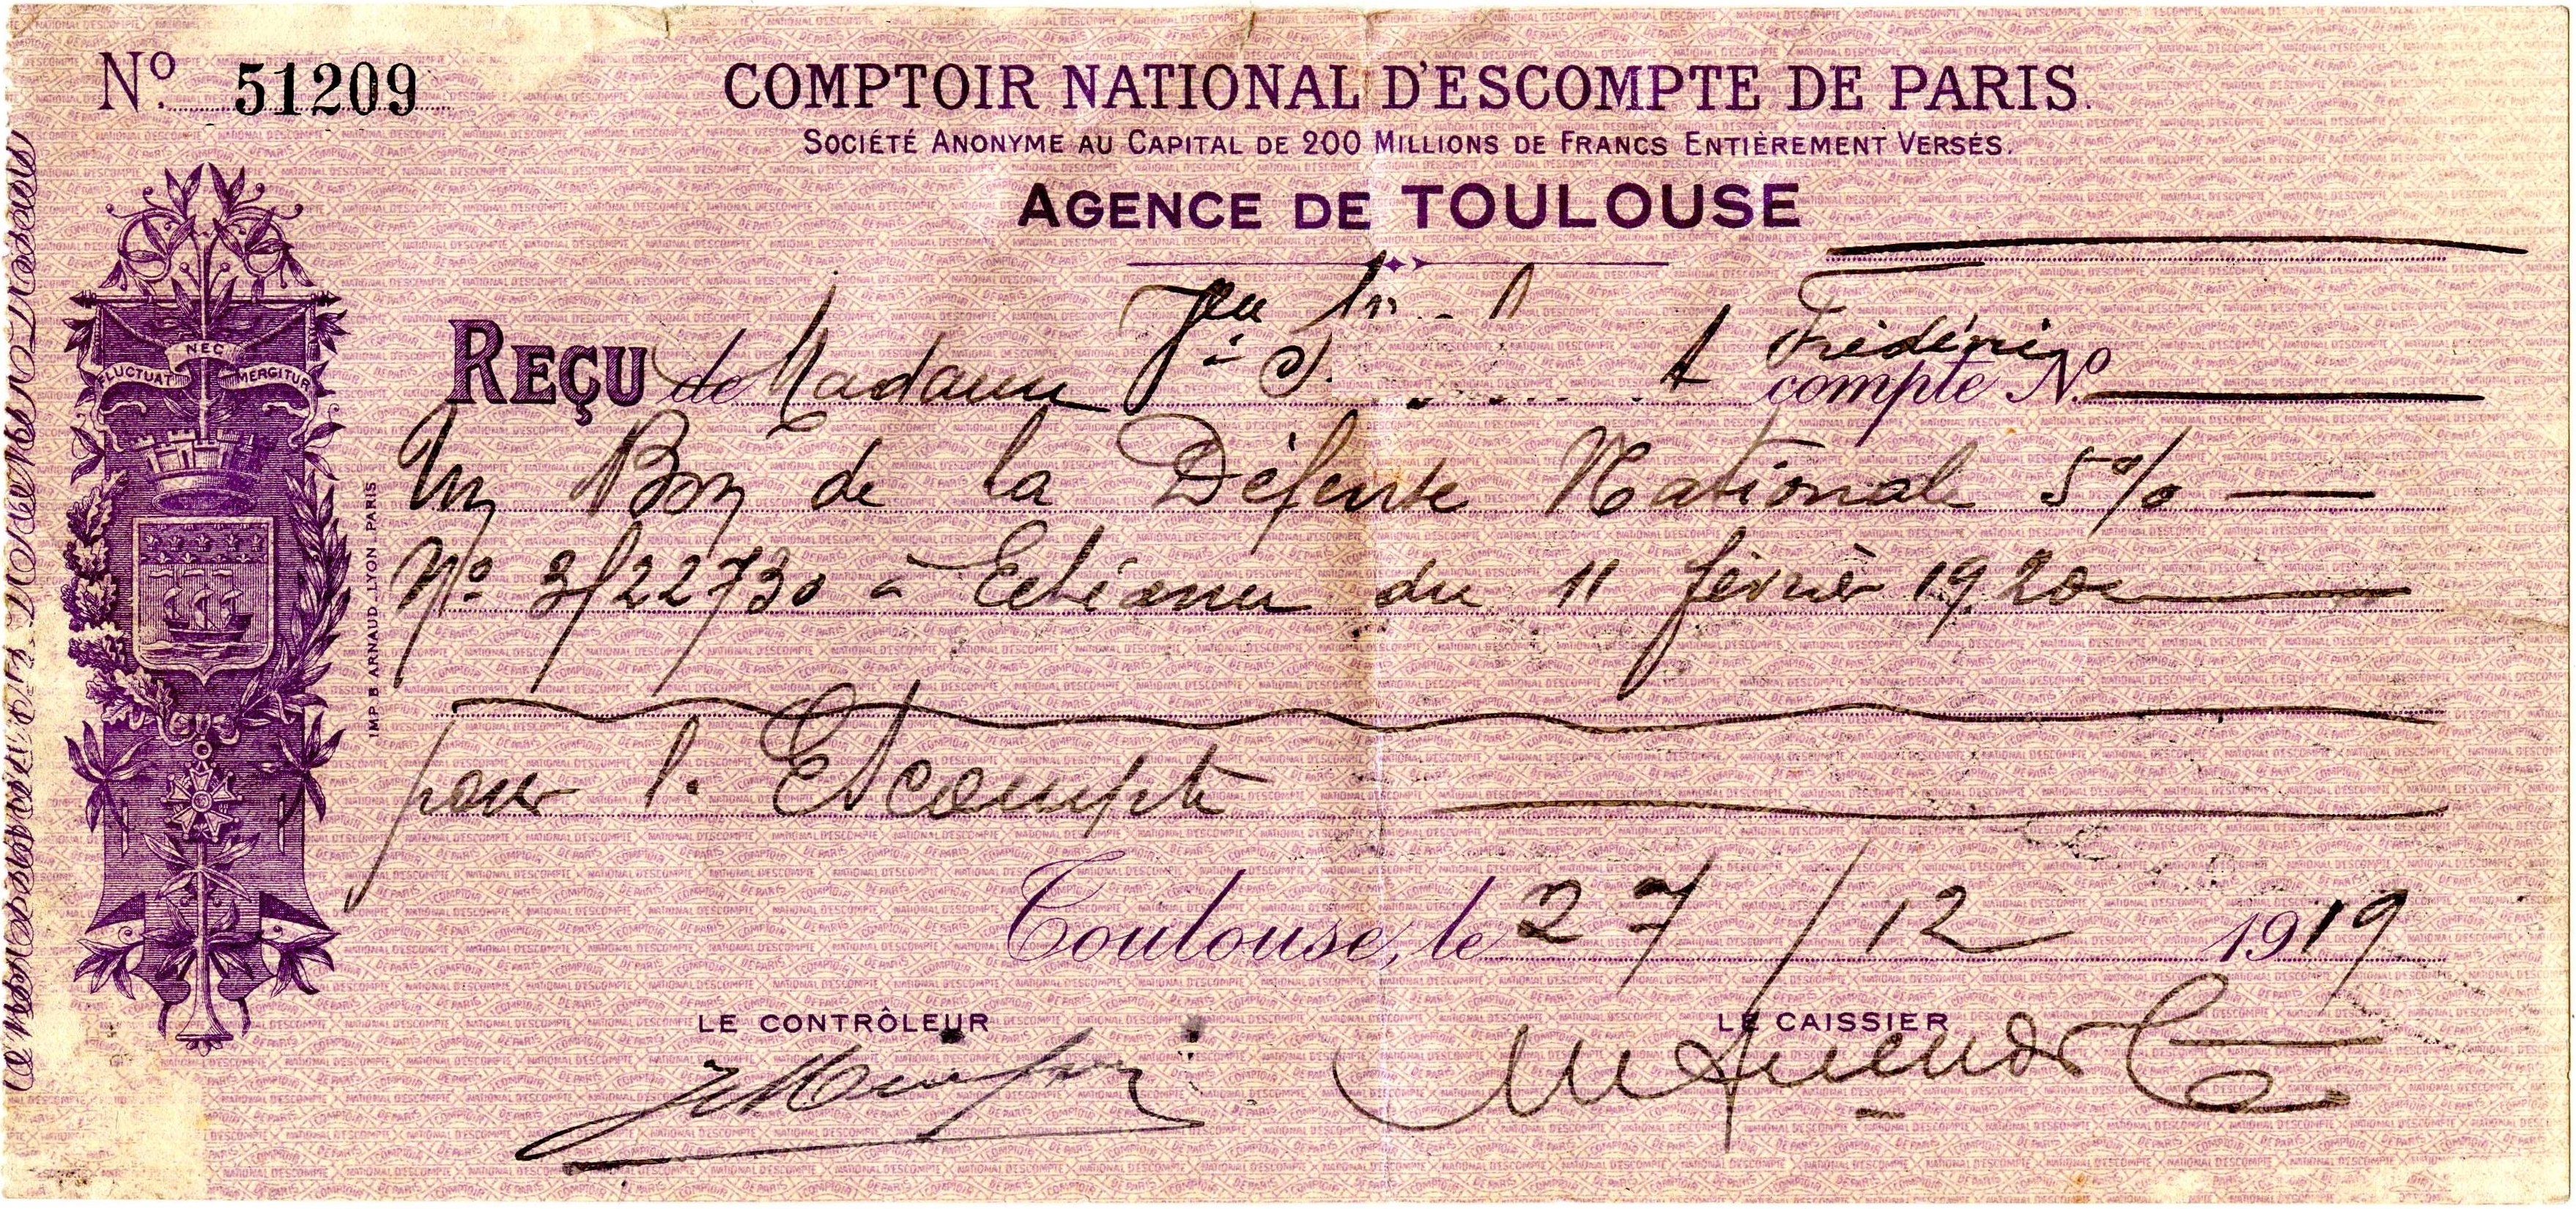 Nº 51209
COMPTOIR NATIONAL D'ESCOMPTE DE PARIS.
SOCIÉTÉ ANONYME AU CAPITAL DE 200 MILLIONS DE FRANCS ENTIÈREMENT VERSÉS.
AGENCE DE TOULOUSE
NEC
FLUCTUAT MERGITUR
REÇU de Madame Frédéric compte Nº
Un Bon de la Défense Nationale 5% —
Nº 3/22730 - Echéance du 11 février 1920
pour l'Escompte
Toulouse, le 27/12 1919
LE CONTRÔLEUR LE CAISSIER
IMP. B. ARNAUD. LYON. PARIS